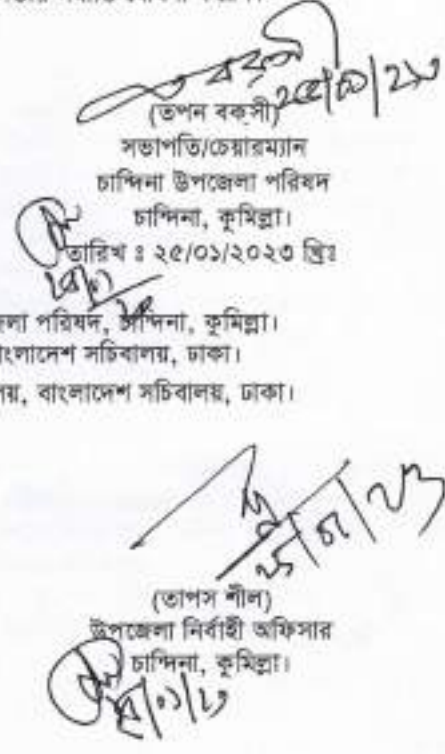 ২৫/০১/২৩
(তপন বকসী)
সভাপতি/চেয়ারম্যান
চান্দিনা উপজেলা পরিষদ
চান্দিনা, কুমিল্লা।
তারিখ ঃ ২৫/০১/২০২৩ খ্রিঃ
জেলা পরিষদ, চান্দিনা, কুমিল্লা।
বাংলাদেশ সচিবালয়, ঢাকা।
লয়, বাংলাদেশ সচিবালয়, ঢাকা।
(তাপস শীল)
উপজেলা নির্বাহী অফিসার
চান্দিনা, কুমিল্লা।